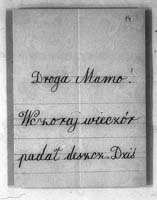 14
Droga Mamo!
Wczoraj wieczór
padał deszcz. Dziś